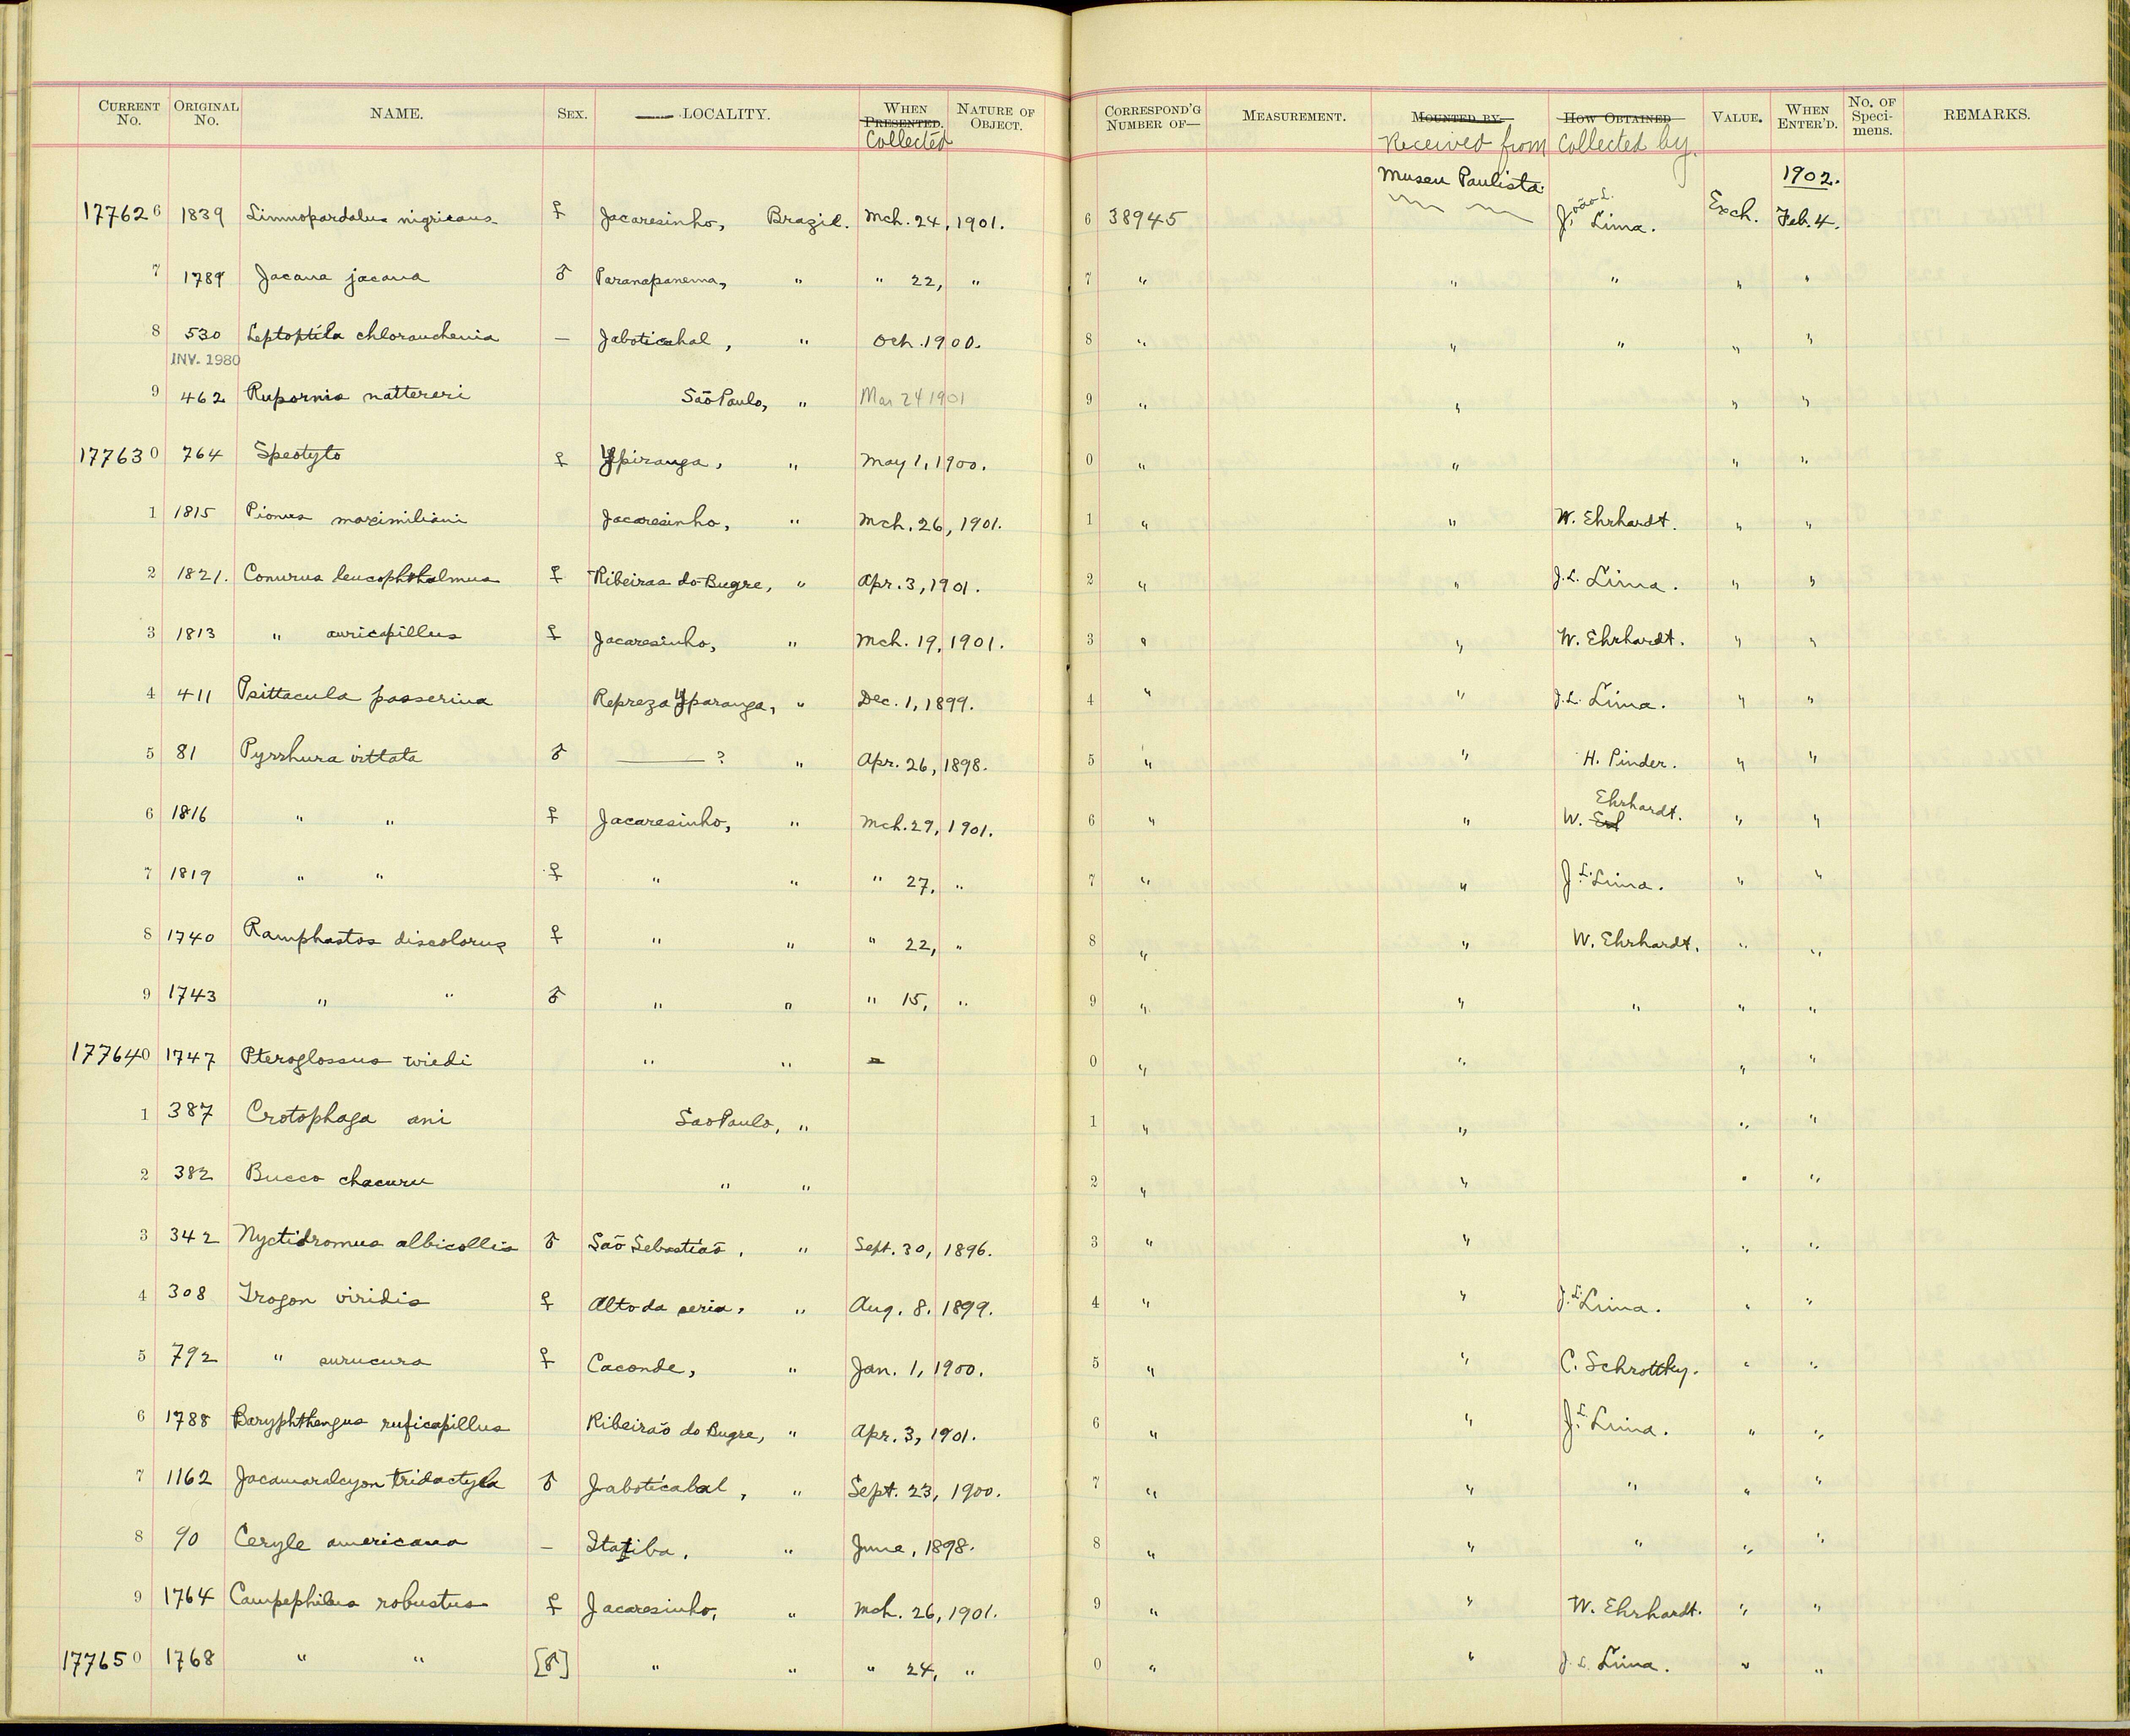 CURRENT No. ORIGINAL No. NAME. SEX. LOCALITY. WHEN PRESENTED. Collected NATURE OF OBJECT. CORRESPOND'G NUMBER OF— MEASUREMENT. MOUNTED BY Received from HOW OBTAINED Collected by. VALUE. WHEN ENTER'D. No. OF Specimens. REMARKS.
Museu Paulista. 1902.
177626 1839 Limnopardalus nigricans ♀ Jacaresinho, Brazil. Mch. 24, 1901. 6 38945 João L. Lima. Exch. Feb. 4.
7 1789 Jacana jacana ♂ Paranapanema, " " 22, " 7 " " " " "
8 530 Leptoptila chlorauchenia — Jaboticabal, " Oct. 1900. 8 " " " " "
INV. 1980
9 462 Rupornis nattereri São Paulo, " Mar 24 1901 9 " " " "
177630 764 Speotyto ♀ Ypiranga, " May 1, 1900. 0 " " " "
1 1815 Pionus maximiliani Jacaresinho, " Mch. 26, 1901. 1 " " W. Ehrhardt. " "
2 1821. Conurus leucophthalmus ♀ Ribeiras do Bugre, " Apr. 3, 1901. 2 " " J. L. Lima. " "
3 1813 " auricapillus ♀ Jacaresinho, " Mch. 19, 1901. 3 " " W. Ehrhardt. " "
4 411 Psittacula passerina Repreza Yparanga, " Dec. 1, 1899. 4 " " J. L. Lima. " "
5 81 Pyrrhura vittata ♂ — ? " Apr. 26, 1898. 5 " " H. Pinder. " "
6 1816 " " ♀ Jacaresinho, " Mch. 29, 1901. 6 " " W. Ehrhardt. " "
7 1819 " " ♀ " " " 27, " 7 " " J. L. Lima. " "
8 1740 Ramphastos discolorus ♀ " " " 22, " 8 " " W. Ehrhardt. " "
9 1743 " " ♂ " " " 15, " 9 " " " " "
177640 1747 Pteroglossus wiedi " " 0 " " " "
1 387 Crotophaga ani Sao Paulo, " 1 " " " "
2 382 Bucco chacuru " " 2 " " " "
3 342 Nyctidromus albicollis ♂ Saõ Sebastiaõ, " Sept. 30, 1896. 3 " " " "
4 308 Trogon viridis ♀ Alto da seria, " Aug. 8. 1899. 4 " " J. L. Lima. " "
5 792 " surucura ♀ Caconde, " Jan. 1, 1900. 5 " " C. Schrottky. " "
6 1788 Baryphthengus ruficapillus Ribeiraõ do Bugre, " Apr. 3, 1901. 6 " " J. L. Lima. " "
7 1162 Jacamaralcyon tridactyla ♂ Jaboticabal, " Sept. 23, 1900. 7 " " " " "
8 90 Ceryle americana — Itatiba, " June, 1898. 8 " " " " "
9 1764 Campephilus robustus ♀ Jacaresinho, " Mch. 26, 1901. 9 " " W. Ehrhardt. " "
177650 1768 " " [♂] " " " 24, " 0 " " J. L. Lima. " "